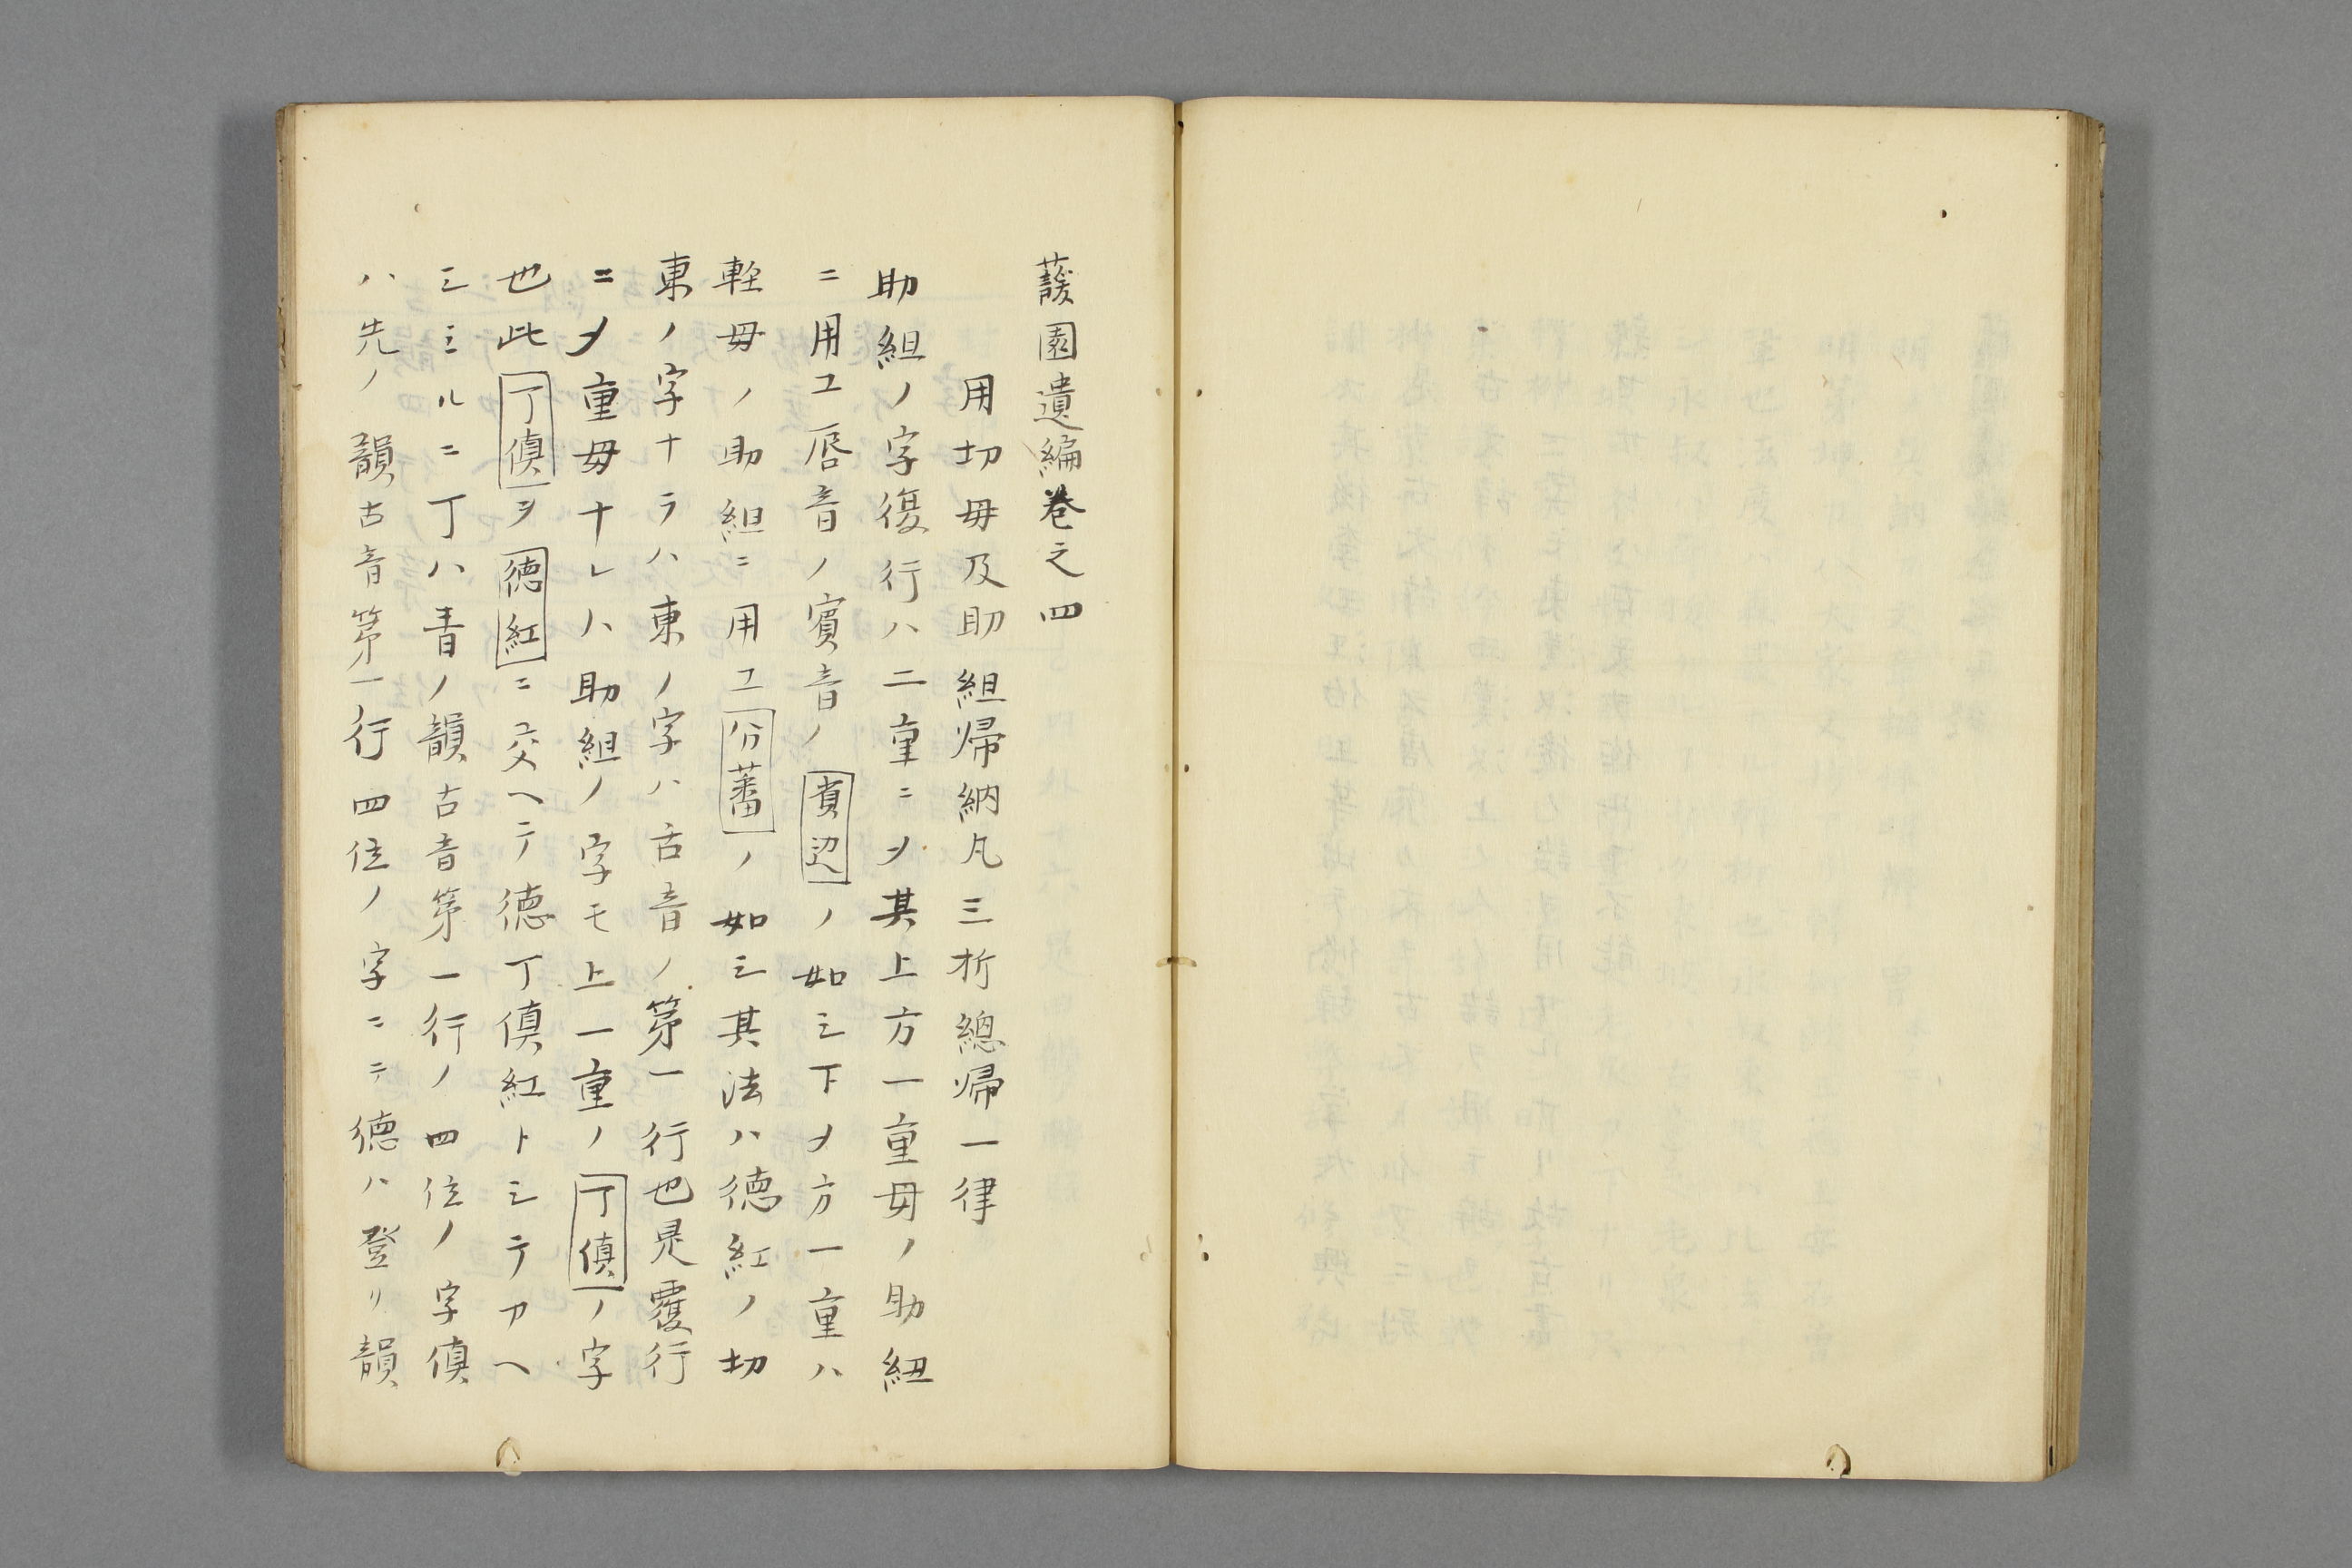 蘐園遺編巻之四
用切母及助組帰納凡三折總帰一律
助組ノ字復行ハ二重ニメ其上方一重母ノ助紐
ニ用ユ唇音ノ賓音ノ賓辺ノ如シ下メ方一重ハ
軽母ノ助組ニ用ユ分蕃ノ如シ其法ハ徳紅ノ切
東ノ字ナラハ東ノ字ハ舌音ノ第一行也是覆行
ニメ重母ナレハ助組ノ字モ上一重ノ丁傎ノ字
也此丁傎ヲ徳紅ニ交ヘテ徳丁傎紅トシテカヘ
シミルニ丁ハ青ノ韻古音第一行ノ四位ノ字傎
ハ先ノ韻古音第一行四位ノ字ニテ徳ハ登リ韻